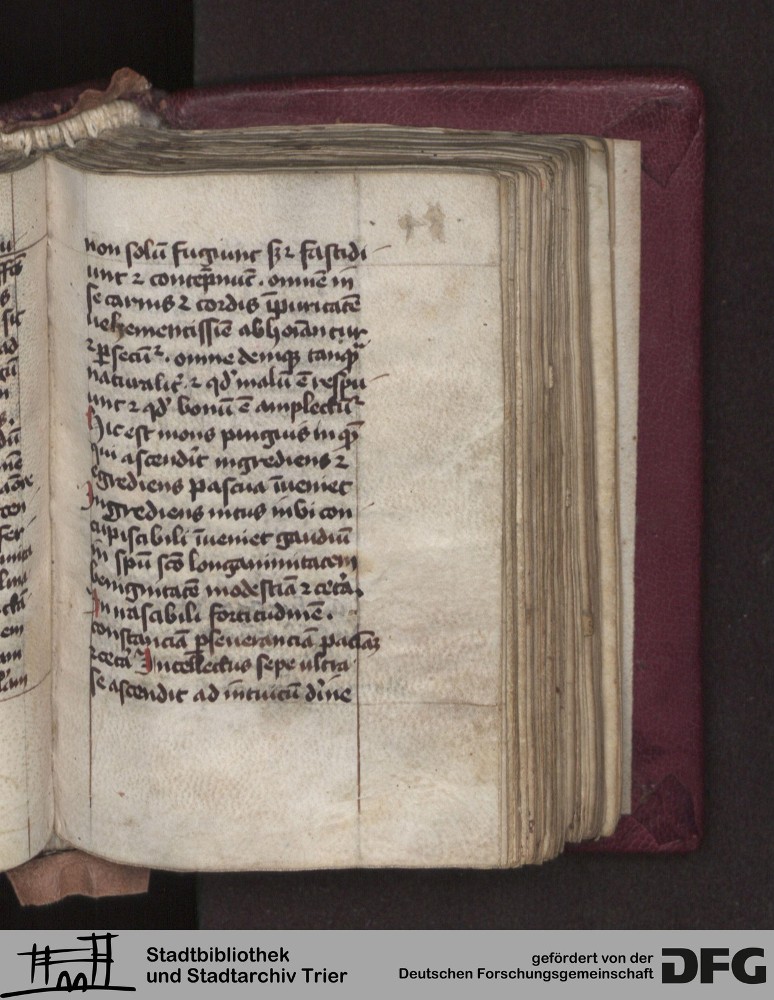 non solū fugiunt sꝫ ⁊ fastidi
unt ⁊ contēpnūt . omnem in
se carnis ⁊ cordis īpuritatē
uehementissie abhoīantur
⁊ ꝑsecūt᷑ . omne deniqꝫ tanqͣ
naturalit᷑ . ⁊ qd' malū ē respu
unt ⁊ qd' bonū ē amplectūt᷑
Hic est mons pinguis in quē
qui ascendit ingrediens ⁊
egrediens pascua īueniet
Ingrediens intus in vi con
cupiscibili īueniet gaudiū
in spū scō longanimitatem
benignitatē modestiā ⁊ cetā.
In irascibili fortitudinē .
constanciā ꝑseueranciā paciāꝫ
⁊ cetā Intellectus sepe ultra
se ascendit ad intuitū diīne
Stadtbibliothek
und Stadtarchiv Trier
gefördert von der
Deutschen Forschungsgemeinschaft
DFG